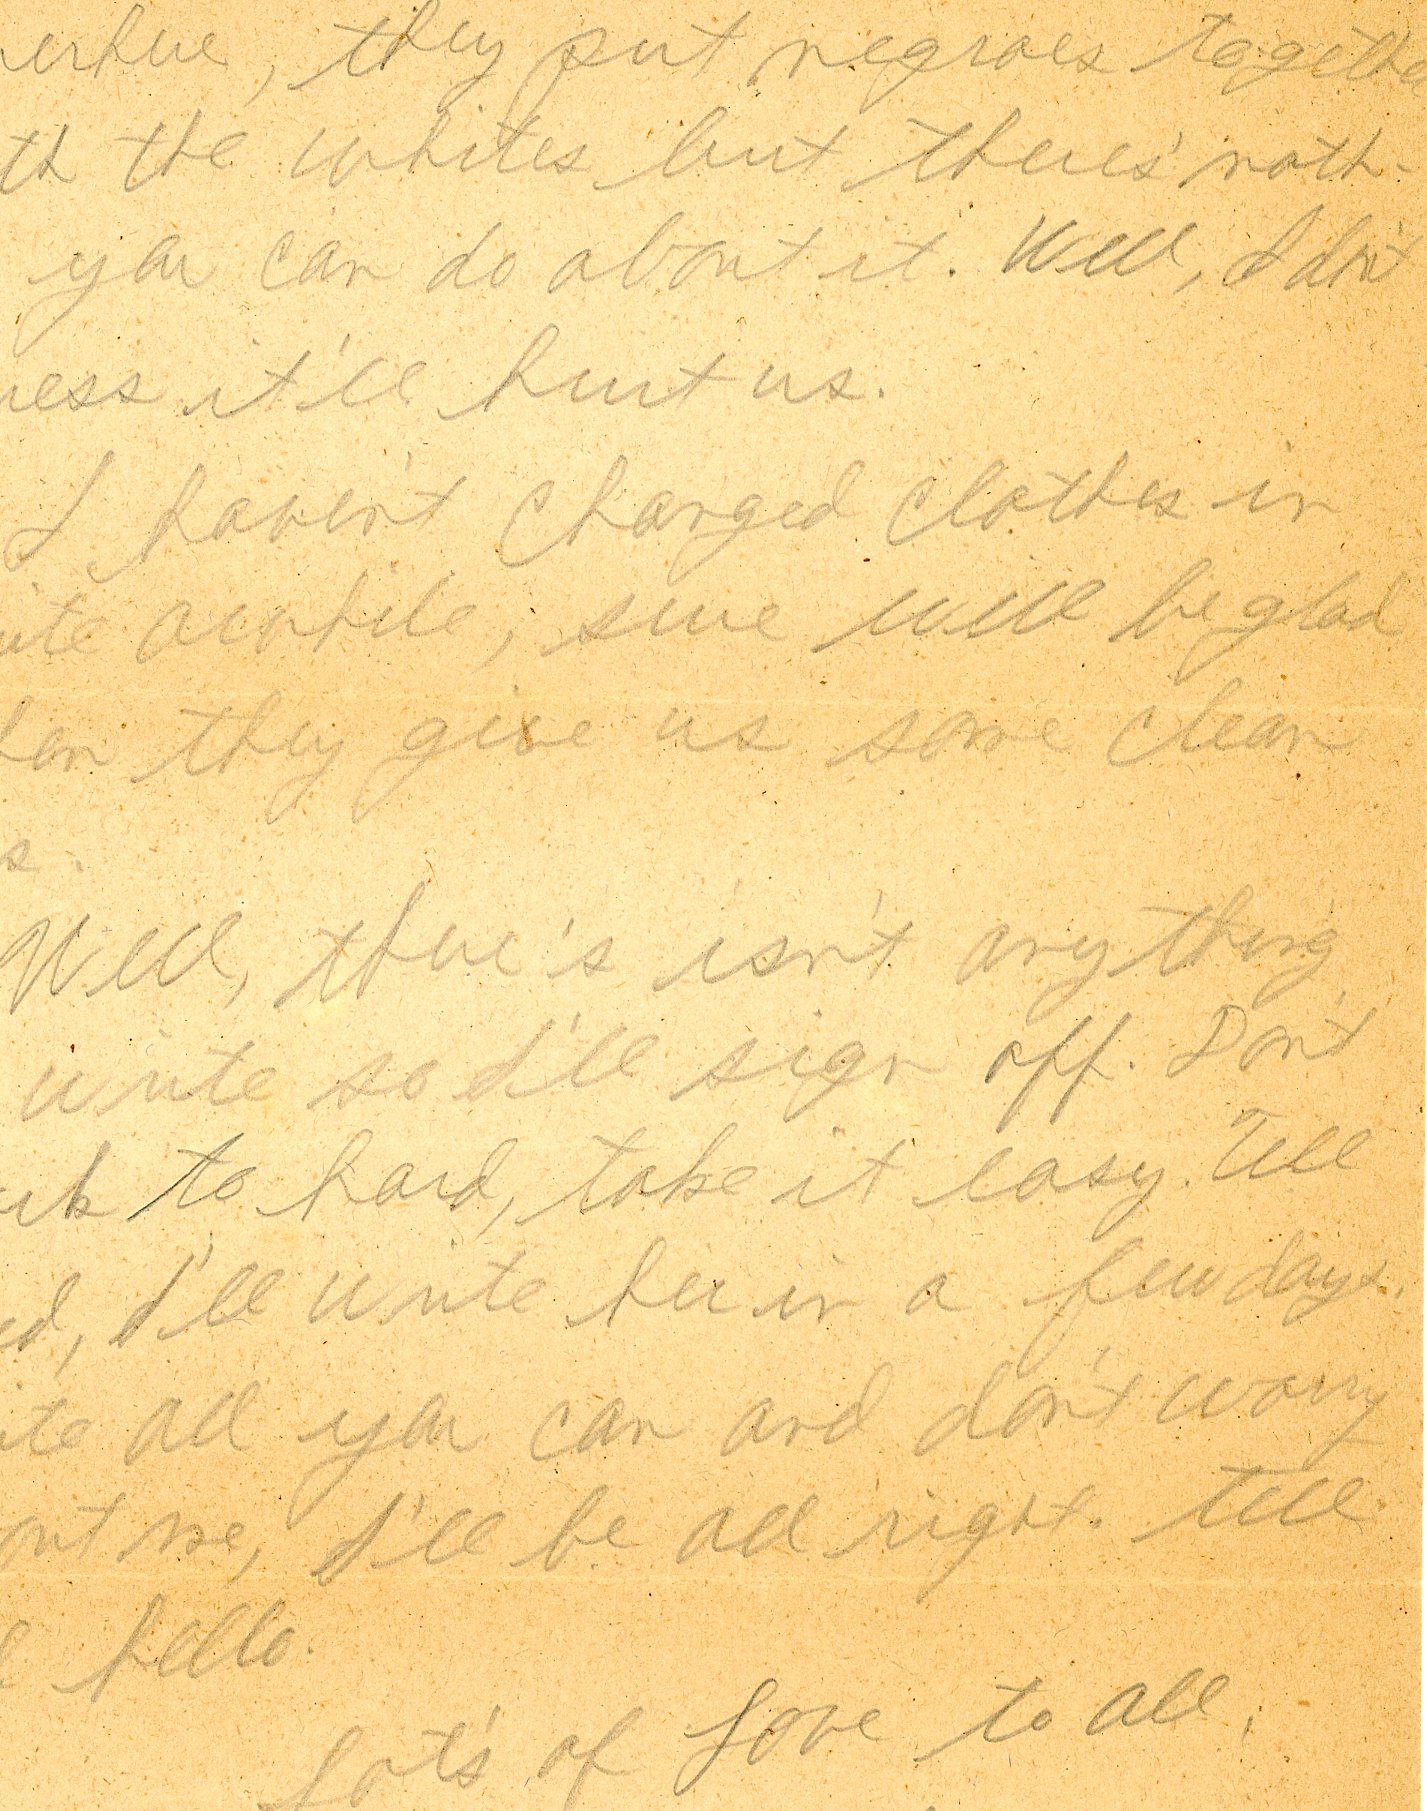 here, they put negroes togethe
th the whites but there's noth-
you can do about it. Well, I don't
uess it'll hurt us.
I haven't changed clothes in
ite awhile, sure will be glad
hen they give us some clean
s.
Well, there's isn't anything
write so I'll sign off. Don't
rk to hard, take it easy. Tell
ed, I'll write her in a few days.
ite all you can and don't worry
out me, I'll be all right. tell
l hello.
Lots of Love to all,